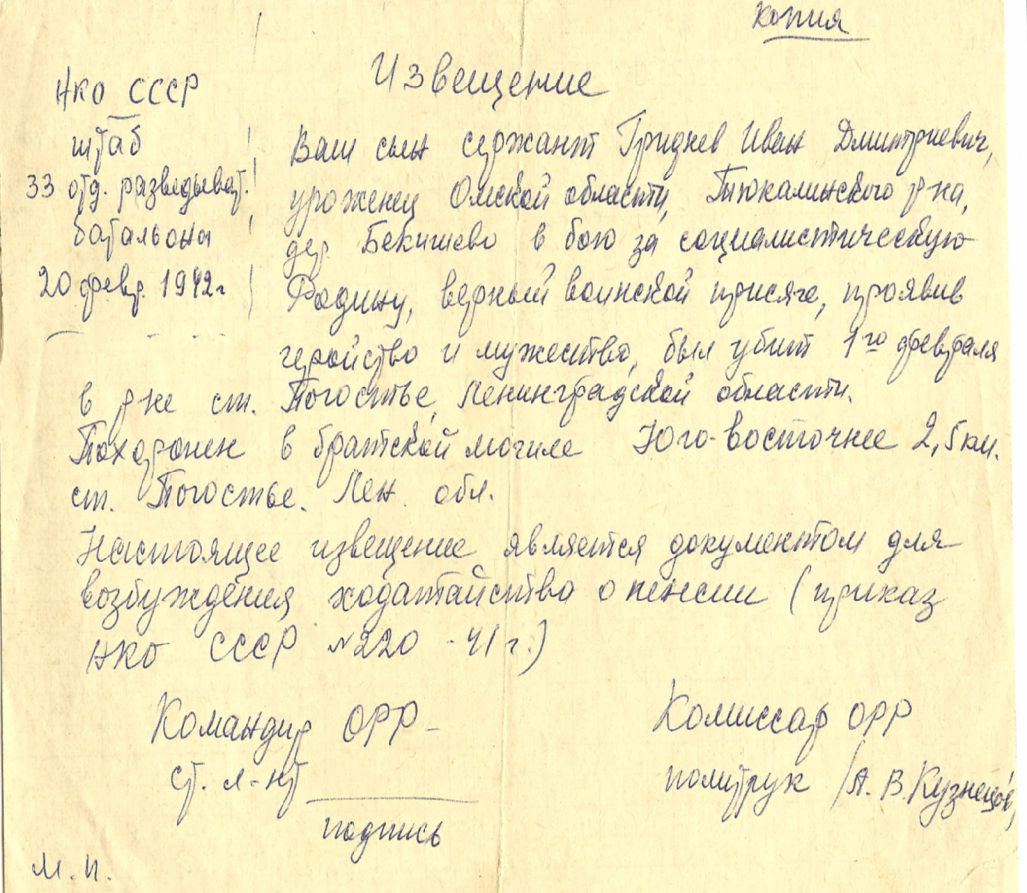 копия
Извещение
НКО СССР
штаб
33 отд. разведыват.
батальона
20 февр. 1942г
Ваш сын сержант Гриднев Иван Дмитриевич,
уроженец Омской области, Тюкалинского р-на,
дер. Бекишево в бою за социалистическую
Родину, верный воинской присяге, проявив
геройство и мужество, был убит 1го февраля
в р-не ст. Погостье, Ленинградской области.
Похоронен в братской могиле Юго-восточнее 2,5 км.
ст. Погостье. Лен. обл.
Настоящее извещение является документом для
возбуждения ходатайства о пенсии (приказ
НКО СССР №220 -41г.)
Командир ОРР-
ст. л-нт
подпись
Комиссар ОРР
политрук /А.В.Кузнецов/
М.П.